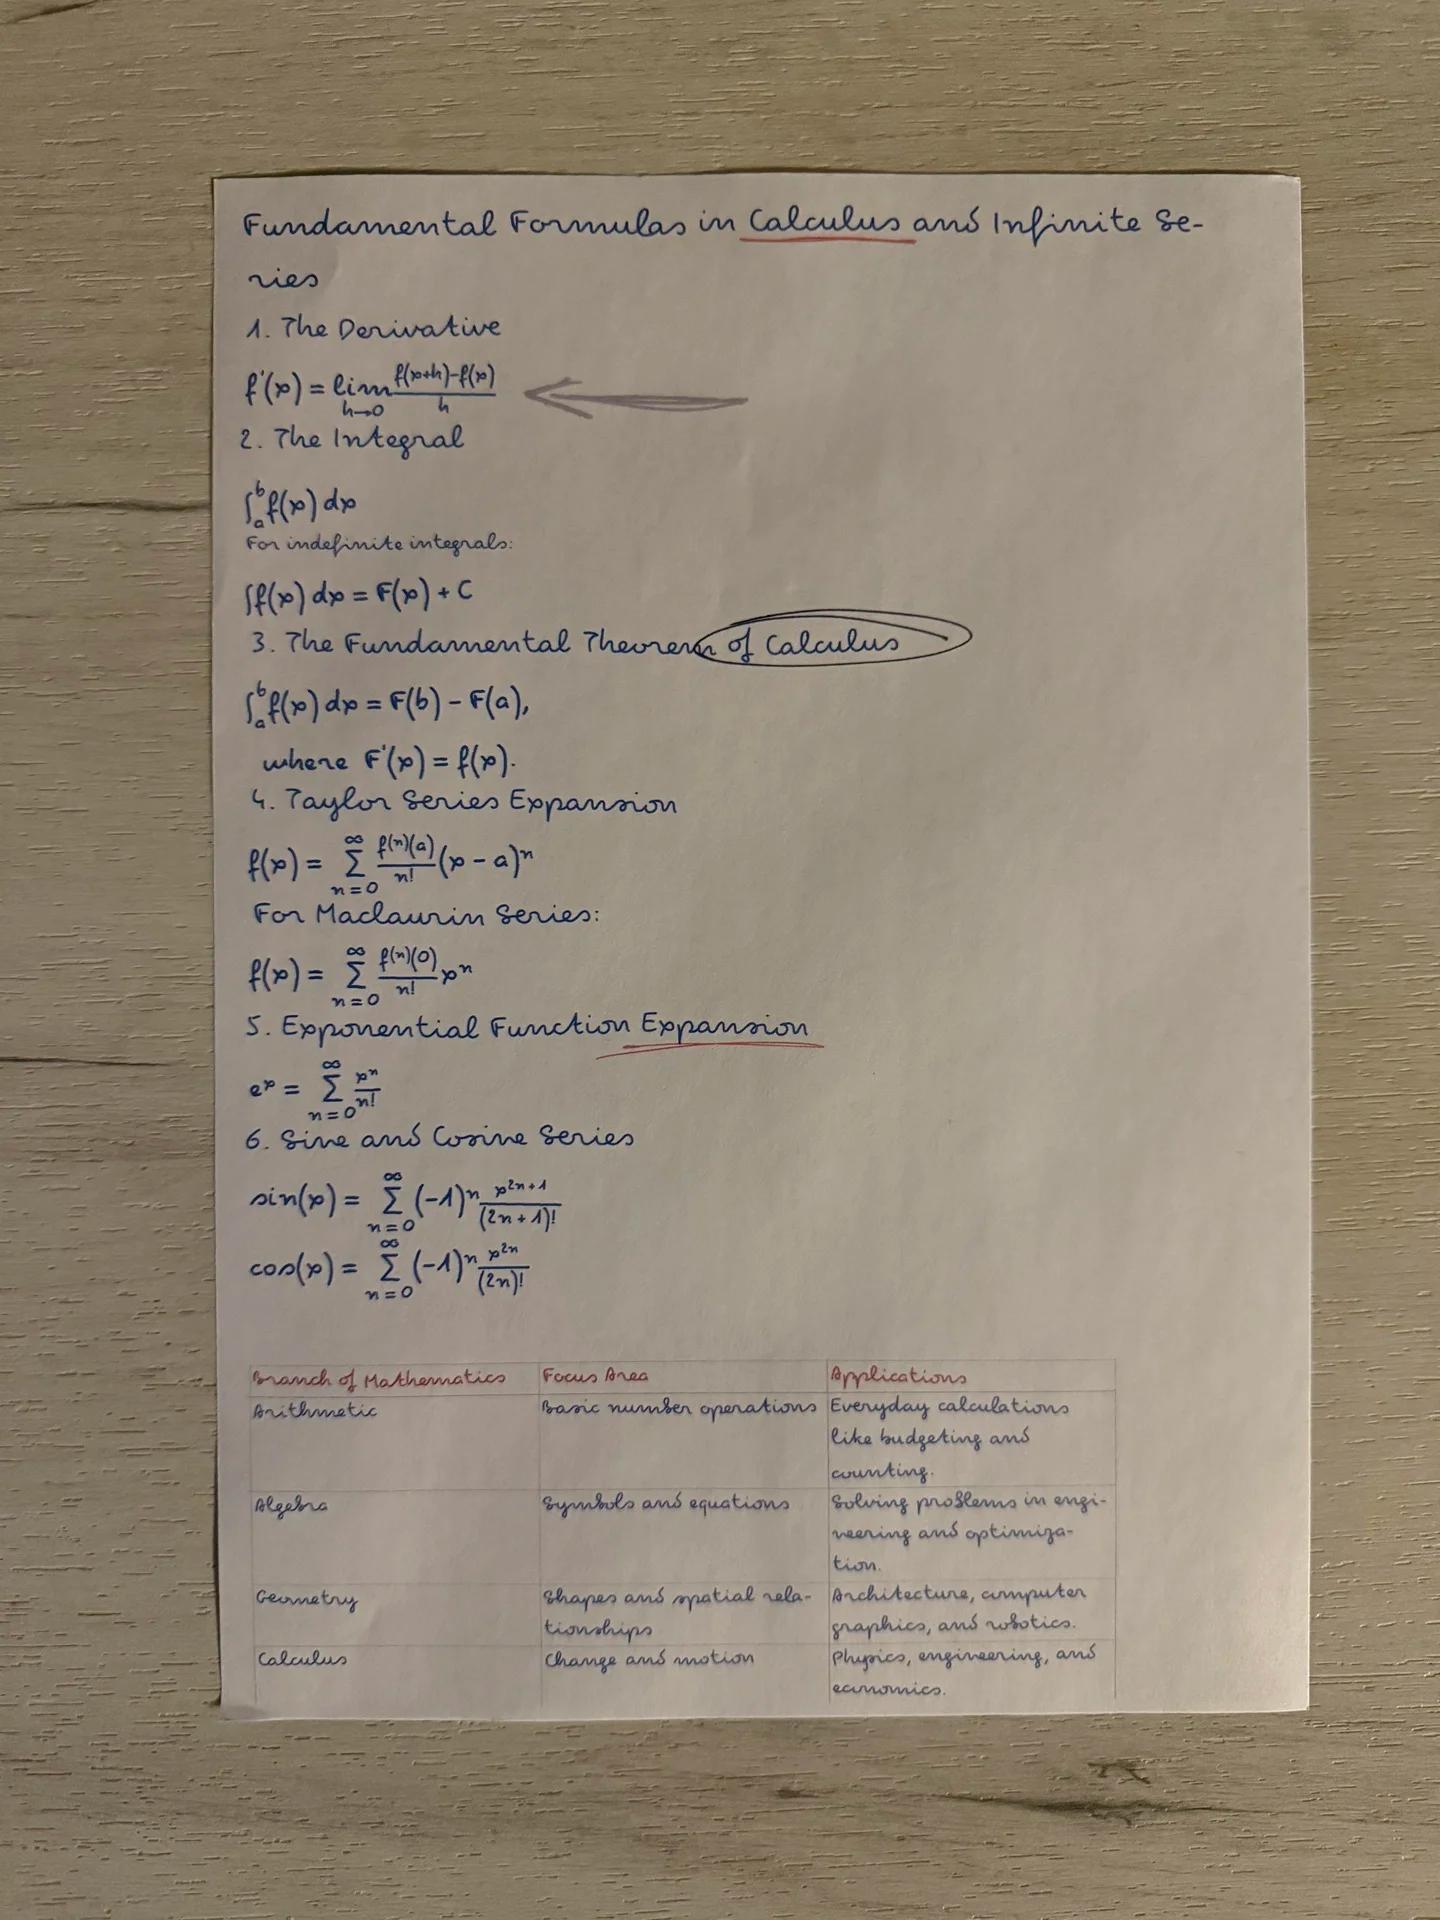 Fundamental Formulas in Calculus and Infinite Se-
ries
1. The Derivative
f'(x) = lim h→0 f(x+h)-f(x) / h
2. The Integral
∫_a^b f(x) dx
For indefinite integrals:
∫f(x) dx = F(x) + C
3. The Fundamental Theorem of Calculus
∫_a^b f(x) dx = F(b) - F(a),
where F'(x) = f(x).
4. Taylor Series Expansion
f(x) = ∑_{n=0}^∞ f(n)(a)/n! (x - a)^n
For Maclaurin Series:
f(x) = ∑_{n=0}^∞ f(n)(0)/n! x^n
5. Exponential Function Expansion
e^x = ∑_{n=0}^∞ x^n/n!
6. Sine and Cosine Series
sin(x) = ∑_{n=0}^∞ (-1)^n x^{2n+1}/(2n+1)!
cos(x) = ∑_{n=0}^∞ (-1)^n x^{2n}/(2n)!
Branch of Mathematics Focus Area Applications
Arithmetic Basic number operations Everyday calculations
like budgeting and
counting.
Algebra Symbols and equations Solving problems in engi-
neering and optimiza-
tion.
Geometry Shapes and spatial rela- Architecture, computer
tionships graphics, and robotics.
Calculus Change and motion Physics, engineering, and
economics.